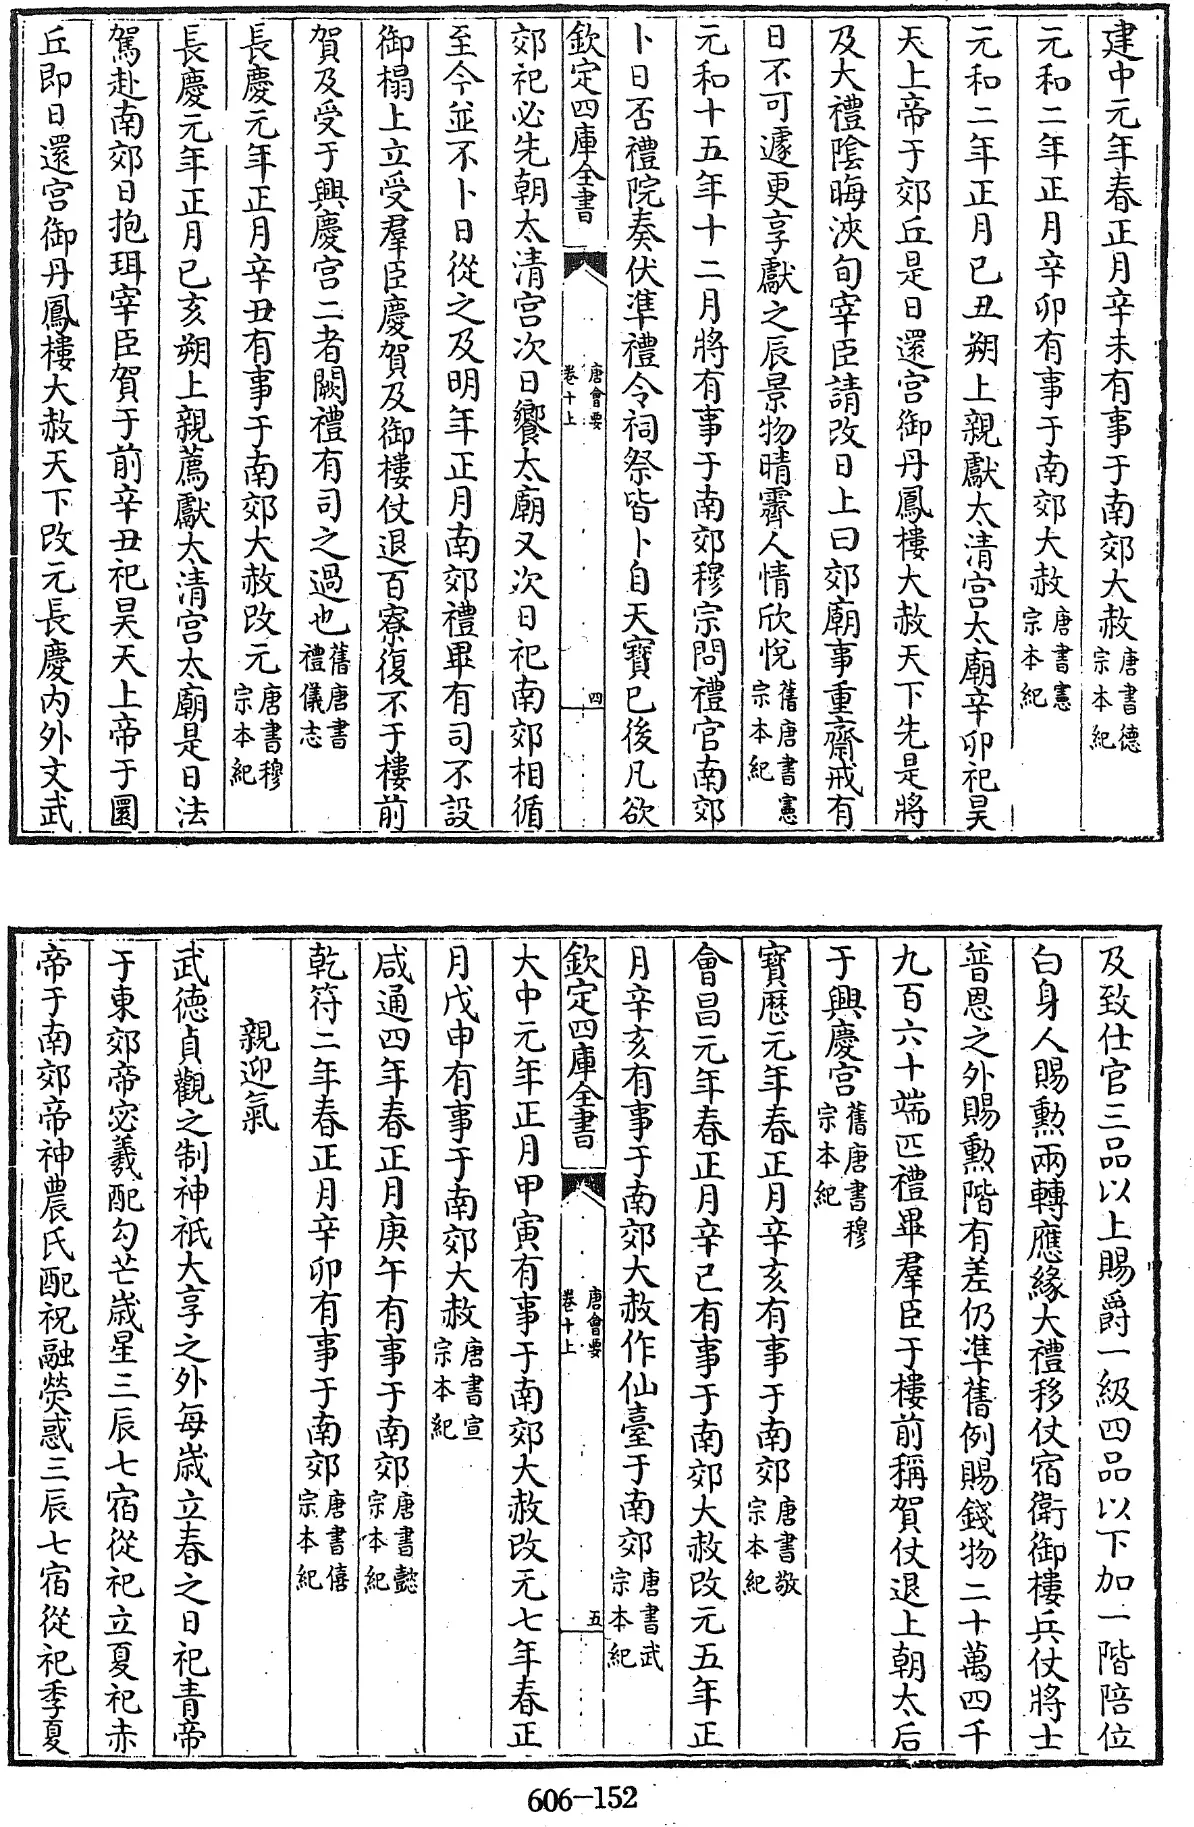 建中元年春正月辛未有事于南郊大赦唐書德宗本紀
元和二年正月辛卯有事于南郊大赦唐書憲宗本紀
元和二年正月己丑朔上親獻太清宫太廟辛卯祀昊
天上帝于郊丘是日還宫御丹鳳樓大赦天下先是將
及大禮陰晦浹旬宰臣請改日上曰郊廟事重齋戒有
日不可遽更享獻之辰景物晴霽人情欣悅舊唐書憲宗本紀
元和十五年十二月將有事于南郊穆宗問禮官南郊
卜日否禮院奏伏準禮令祠祭皆卜自天寶已後凡欲
欽定四庫全書
唐會要
卷十上
四
郊祀必先朝太清宫次日饗太廟又次日祀南郊相循
至今並不卜日從之及明年正月南郊禮畢有司不設
御榻上立受羣臣慶賀及御樓仗退百寮復不于樓前
賀及受于興慶宫二者闕禮有司之過也舊唐書禮儀志
長慶元年正月辛丑有事于南郊大赦改元唐書穆宗本紀
長慶元年正月己亥朔上親薦獻太清宫太廟是日法
駕赴南郊日抱珥宰臣賀于前辛丑祀昊天上帝于圜
丘即日還宫御丹鳳樓大赦天下改元長慶内外文武
及致仕官三品以上賜爵一級四品以下加一階陪位
白身人賜勲兩轉應緣大禮移仗宿衛御樓兵仗將士
普恩之外賜勲階有差仍準舊例賜錢物二十萬四千
九百六十端匹禮畢羣臣于樓前稱賀仗退上朝太后
于興慶宫舊唐書穆宗本紀
寶歷元年春正月辛亥有事于南郊唐書敬宗本紀
會昌元年春正月辛巳有事于南郊大赦改元五年正
月辛亥有事于南郊大赦作仙臺于南郊唐書武宗本紀
欽定四庫全書
唐會要
卷十上
五
大中元年正月甲寅有事于南郊大赦改元七年春正
月戊申有事于南郊大赦唐書宣宗本紀
咸通四年春正月庚午有事于南郊唐書懿宗本紀
乾符二年春正月辛卯有事于南郊唐書僖宗本紀
親迎氣
武德貞觀之制神祇大享之外每歲立春之日祀青帝
于東郊帝宓羲配勾芒歲星三辰七宿從祀立夏祀赤
帝于南郊帝神農氏配祝融熒惑三辰七宿從祀季夏
606-152